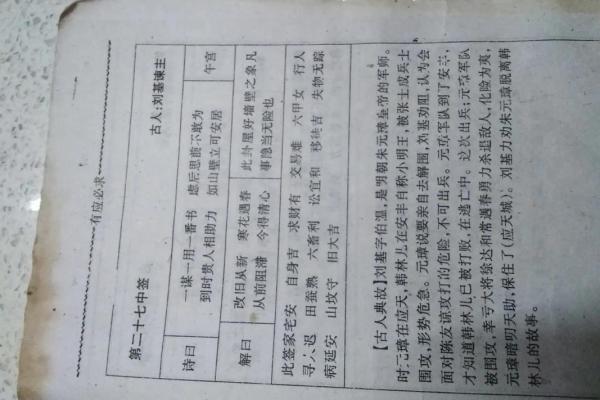 有应必求
第二十七中签
古人:刘基谏主
诗曰
一谋一用一番书 虑后思前不敢为
到时贵人相助力 如山壁立可安居
午宫
解曰
改旧从新 寒花遇春
从前阻滞 今得清心
此卦屋好墙壁之象凡
事隐当无险也
此签家宅安 自身吉 求财有 交易难 六甲女 行人
寻人迟 田蚕熟 六畜利 讼宜和 移徙吉 失物无踪
病延安 山坟守 旧大吉
【古人典故】刘基字伯温,是明朝朱元璋皇帝的军师。
时元璋在应天,韩林儿在安丰自称小明王,被张士成兵士
围攻,形势危急。元璋说要亲自去解围,刘基劝阻,认为会
面对陈友谅攻打的危险,不可出兵。元璋军队到了安丰,
才知道韩林儿已被打败,在逃亡中。这次出兵;元璋军队
被围攻,幸亏大将徐达和常遇春勇力杀退敌人,化险为夷,
元璋暗叨天助,保住了(应天城)。刘基力劝朱元璋脱离韩
林儿的故事。